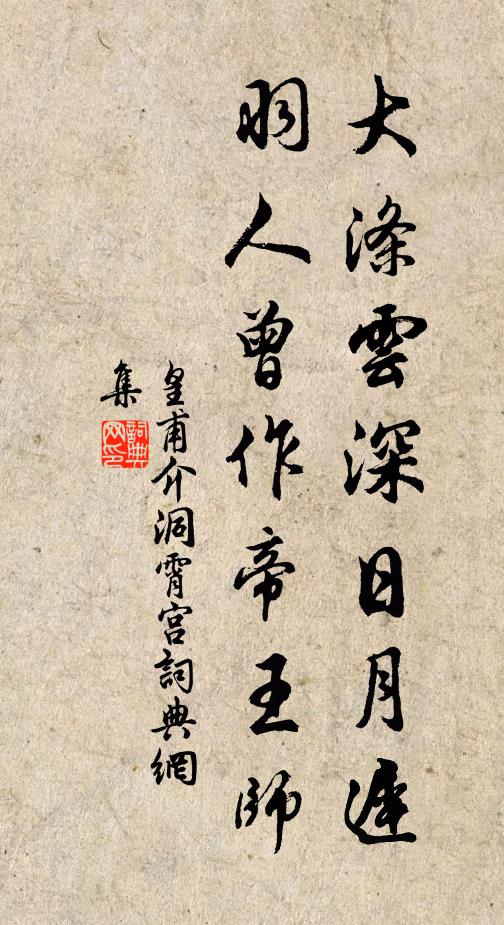 大滌雲深日月遲
羽人曾作帝王師
皇甫介洞霄宮詞典網
集
詞典
网印